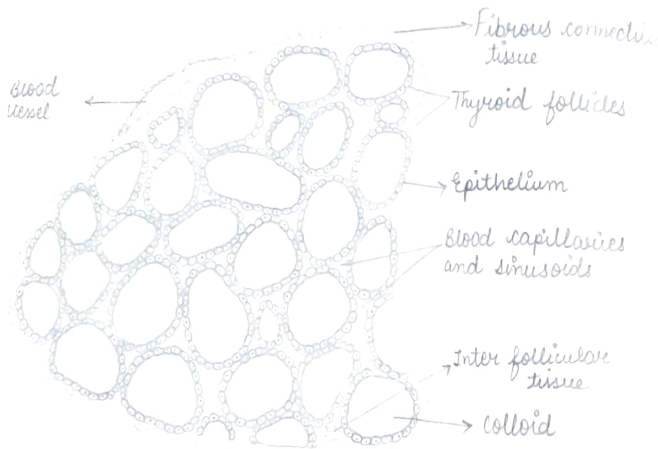 Fibrous connective
tissue
Blood
vessel
Thyroid follicles
Epithelium
Blood capillaries
and sinusoids
Inter follicular
tissue
Colloid